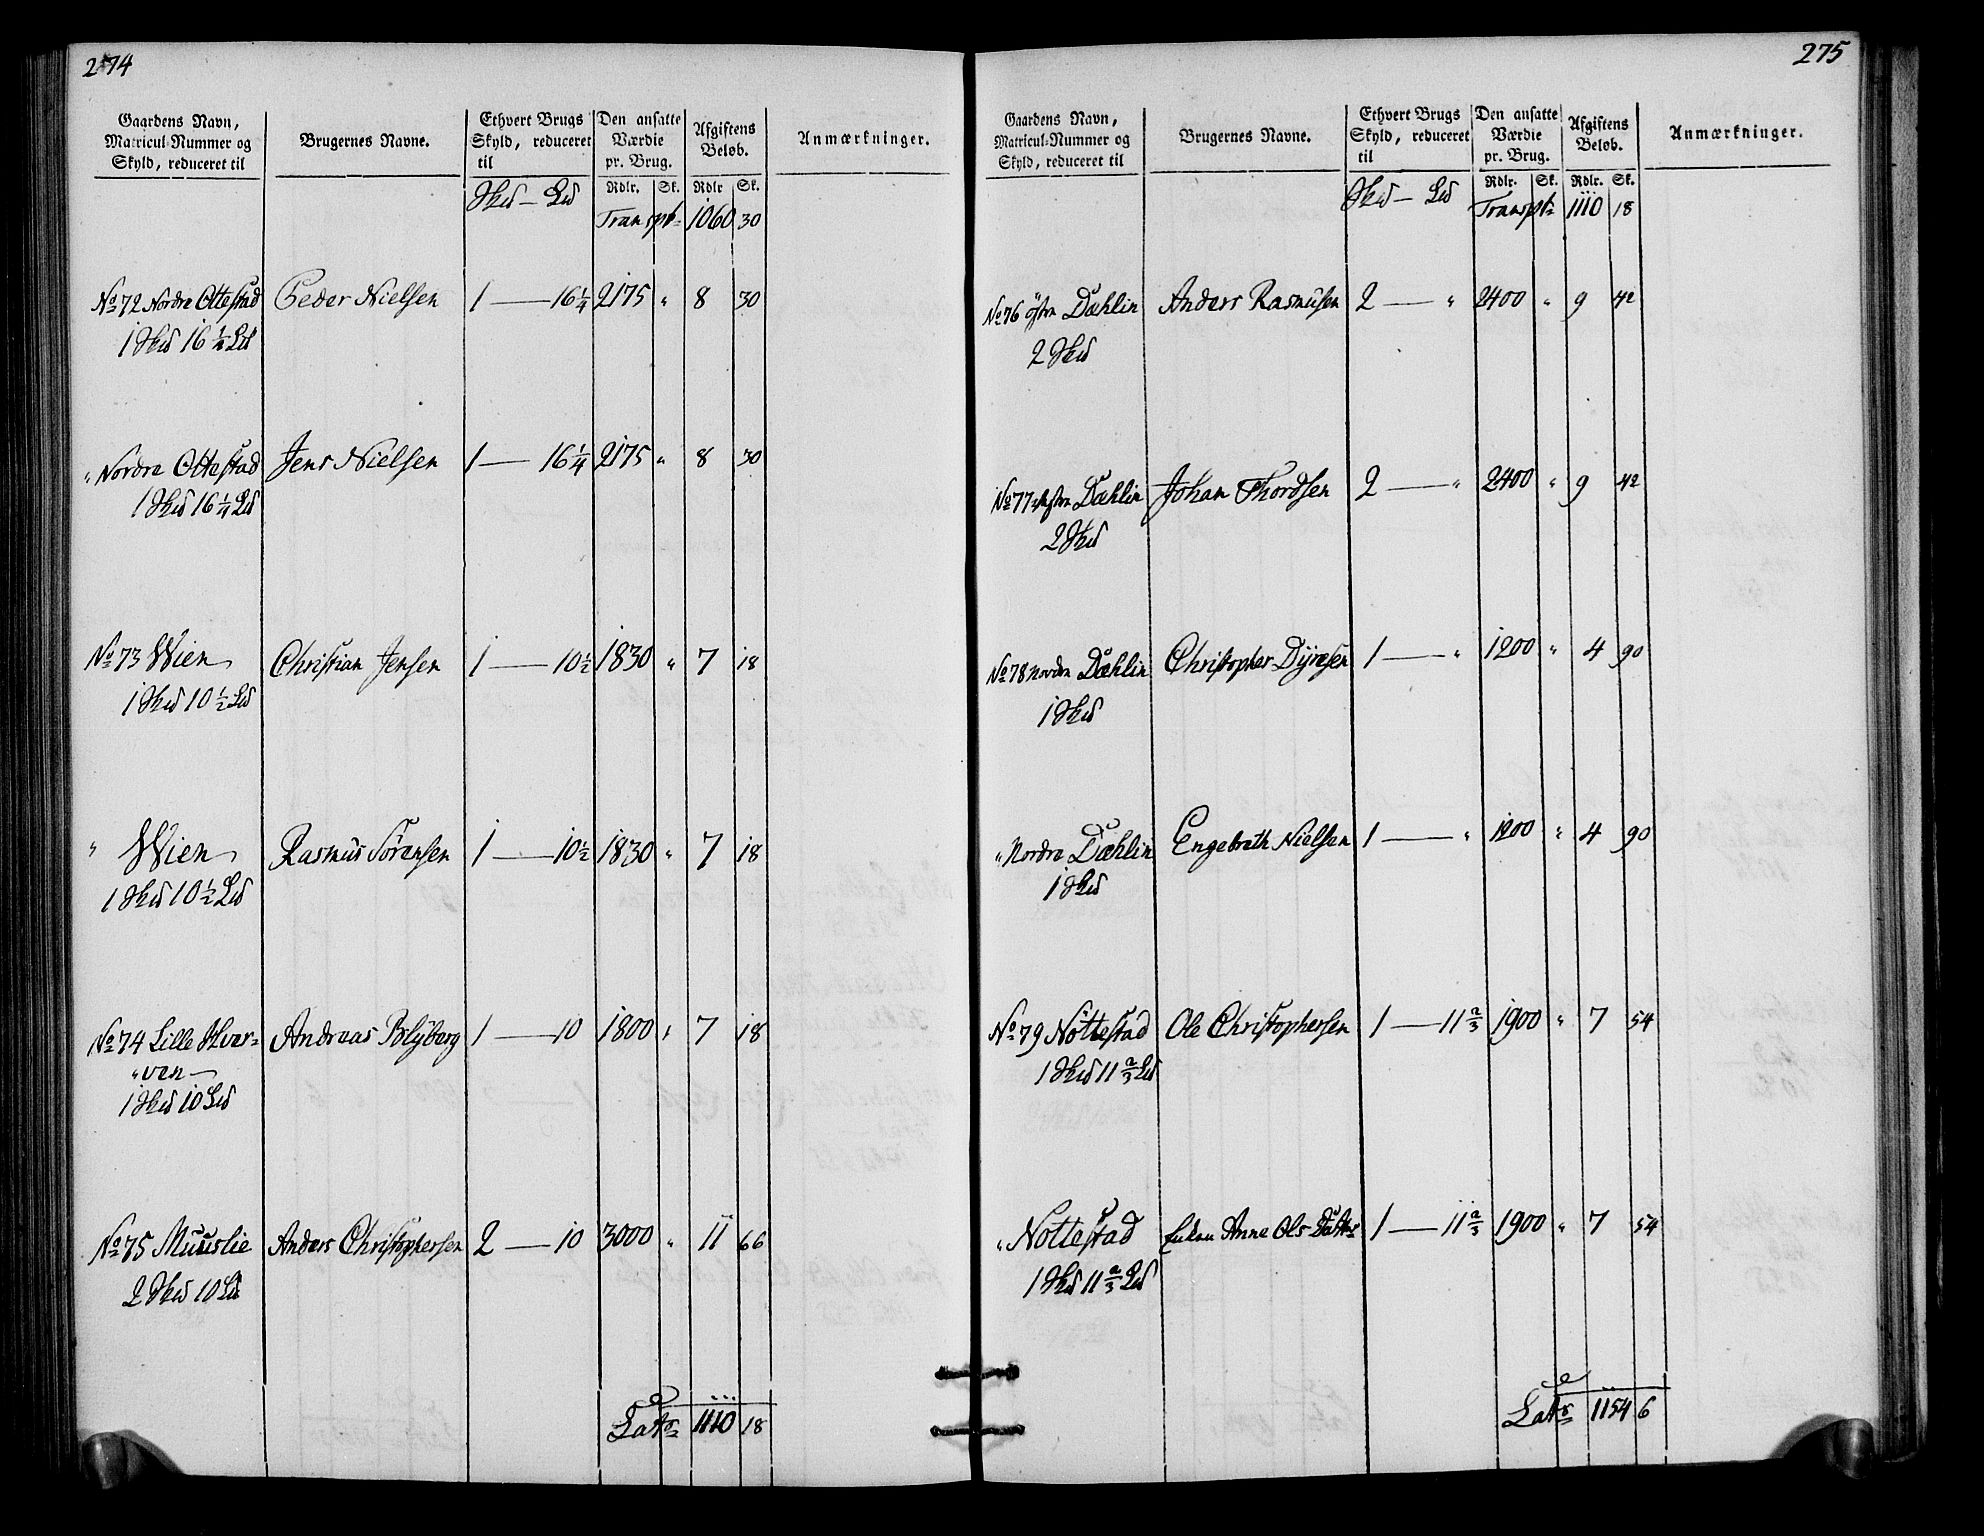 274
Gaardens Navn, Matricul-Nummer og Skyld, reduceret til | Brugernes Navne. | Ethvert Brugs Skyld, reduceret til | Den ansatte Værdie pr. Brug. | Afgiftens Beløb. | Anmærkninger.
Skd — Ld | Rdlr. | Sk. | Rdlr | Sk.
Transpt. 1060 30
No 72 Nordre Ottestad Peder Nielsen 1 — 16 1/4 2175 " 8 30
1 Skd 16 1/4 Ld
" Nordre Ottestad Jens Nielsen 1 — 16 1/4 2175 " 8 30
1 Skd 16 1/4 Ld
No 73 Wien Christian Jensen 1 — 10 1/2 1830 " 7 18
1 Skd 10 1/2 Ld
" Wien Rasmus Sörensen 1 — 10 1/2 1830 " 7 18
1 Skd 10 1/2 Ld
No 74 Lille Hver= Andreas Blÿberg 1 — 10 1800 " 7 18
"ven
1 Skd 10 Ld
No 75 Muuslie Anders Christophersen 2 — 10 3000 " 11 66
2 Skd 10 Ld
Lats 1110 18
275
Gaardens Navn, Matricul-Nummer og Skyld, reduceret til | Brugernes Navne. | Ethvert Brugs Skyld, reduceret til | Den ansatte Værdie pr. Brug. | Afgiftens Beløb. | Anmærkninger.
Skd — Ld | Rdlr. | Sk. | Rdlr. | Sk.
Transpt. 1110 18
No 76 östre Dæhlin Anders Rasmusen 2 — " 2400 " 9 42
2 Skd
No 77 Dæhlin Johan Thordsen 2 — " 2400 " 9 42
2 Skd
No 78 nordre Dæhlin Christopher Dÿresen 1 — " 1200 " 4 90
1 Skd
" Nordre Dæhlin Engebreth Nielsen 1 — " 1200 " 4 90
1 Skd
No 79 Nöttestad Ole Christophersen 1 — 11 2/3 1900 " 7 54
1 Skd 11 2/3 Ld
" Nöttestad Enken Anne Ols Datter 1 — 11 2/3 1900 " 7 54
1 Skd 11 2/3 Ld
Lats 1154 6